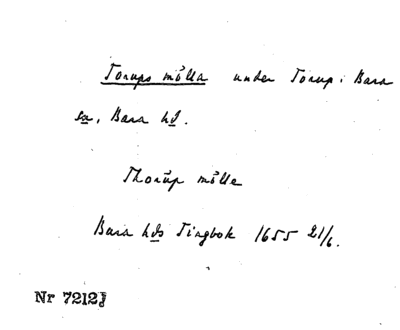 Torups mölla under Torup i Bara
sn, Bara hd.
Thorüp mölle
Bara hds Tingbok 1655 21/6.
Nr 7212